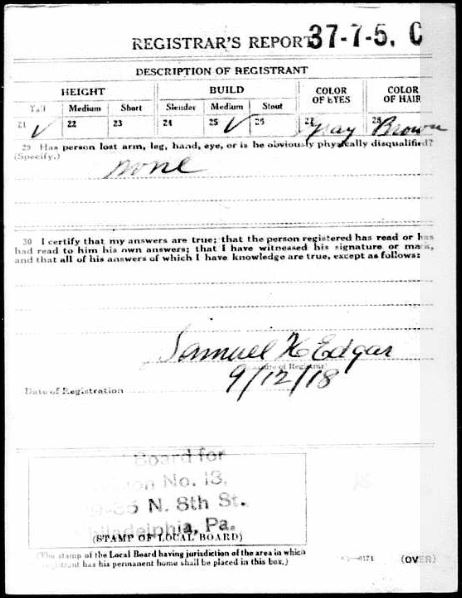 REGISTRAR'S REPORT 37-7-5. C
DESCRIPTION OF REGISTRANT
HEIGHT BUILD COLOR OF EYES COLOR OF HAIR
Tall Medium Short Slender Medium Stout
21 ✓ 22 23 24 25 ✓ 26 27 Gray 28 Brown
29 Has person lost arm, leg, hand, eye, or is he obviously physically disqualified?
(Specify.)
none
30 I certify that my answers are true; that the person registered has read or has
had read to him his own answers; that I have witnessed his signature or mark,
and that all of his answers of which I have knowledge are true, except as follows:
Samuel H Edgar
(Signature of Registrar)
Date of Registration 9/12/18
Board for
No. 13,
N. 8th St.
Philadelphia, Pa.
(STAMP OF LOCAL BOARD)
(The stamp of the Local Board having jurisdiction of the area in which
registrant has his permanent home shall be placed in this box.)
(OVER)